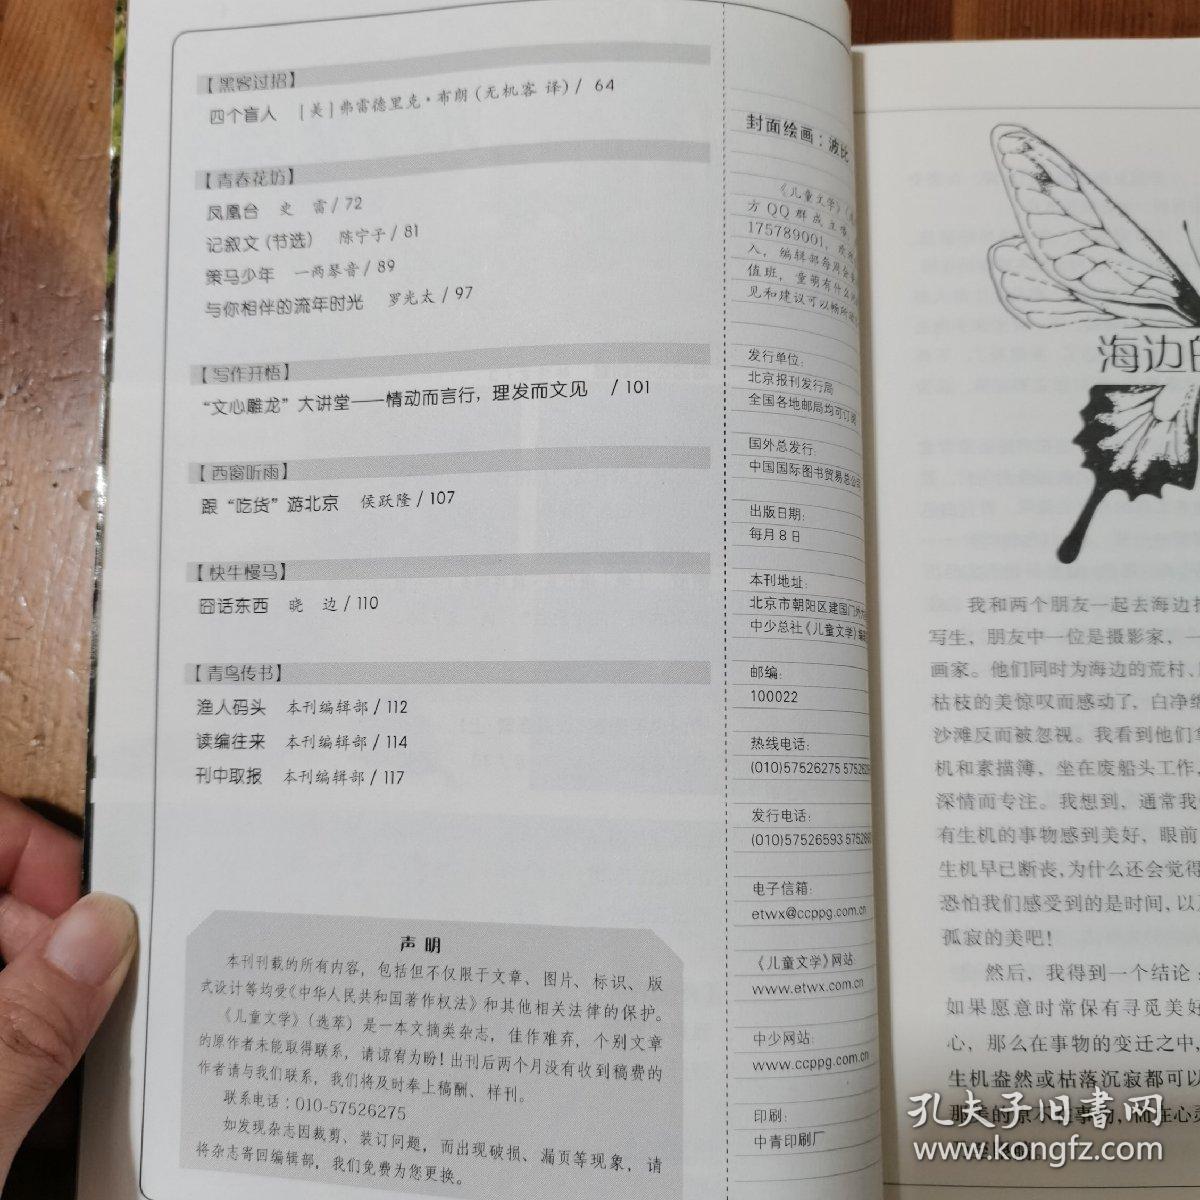 【黑客过招】
四个盲人 [美]弗雷德里克·布朗(无机客 译)/ 64
【青春花坊】
凤凰台 史 雷/72
记叙文(节选) 陈宁子/81
策马少年 一两琴音/89
与你相伴的流年时光 罗光太/97
【写作开悟】
“文心雕龙”大讲堂——情动而言行，理发而文见 /101
【西窗听雨】
跟“吃货”游北京 侯跃隆/107
【快牛慢马】
囧话东西 晓 边/110
【青鸟传书】
渔人码头 本刊编辑部/112
读编往来 本刊编辑部/114
刊中取报 本刊编辑部/117
声明
本刊刊载的所有内容，包括但不仅限于文章、图片、标识、版
式设计等均受《中华人民共和国著作权法》和其他相关法律的保护。
《儿童文学》(选萃)是一本文摘类杂志，佳作难弃，个别文章
的原作者未能取得联系，请谅宥为盼！出刊后两个月没有收到稿费的
作者请与我们联系，我们将及时奉上稿酬、样刊。
联系电话：010-57526275
如发现杂志因裁剪、装订问题，而出现破损、漏页等现象，请
将杂志寄回编辑部，我们免费为您更换。
封面绘画：波比
《儿童文学》(
方QQ群成立喽
175789001，欢
入，编辑部每周会
值班，童萌有什么
见和建议可以畅所
发行单位:
北京报刊发行局
全国各地邮局均可订阅
国外总发行:
中国国际图书贸易总公司
出版日期:
每月8日
本刊地址:
北京市朝阳区建国门外
中少总社《儿童文学》
邮编:
100022
热线电话:
(010)57526275 575262
发行电话:
(010)57526593 57526
电子信箱:
etwx@ccppg.com.cn
《儿童文学》网站:
www.etwx.com.cn
中少网站:
www.ccppg.com.cn
印刷:
中青印刷厂
海边的
我和两个朋友一起去海边
写生，朋友中一位是摄影家，一
画家。他们同时为海边的荒村、
枯枝的美惊叹而感动了，白净细
沙滩反而被忽视。我看到他们拿
机和素描簿，坐在废船头工作，
深情而专注。我想到，通常我
有生机的事物感到美好，眼前
生机早已断丧，为什么还会觉得
恐怕我们感受到的是时间，以
孤寂的美吧！
然后，我得到一个结论：
如果愿意时常保有寻觅美好
心，那么在事物的变迁之中，
生机盎然或枯落沉寂都可以
那美的原不在事物，而在心灵
孔夫子旧书网
www.kongfz.com